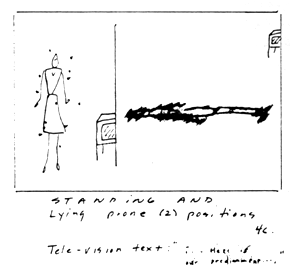 STANDING AND
Lying prone (2) positions
4c.
Tele-vision text: "... Here is
our predicament...."